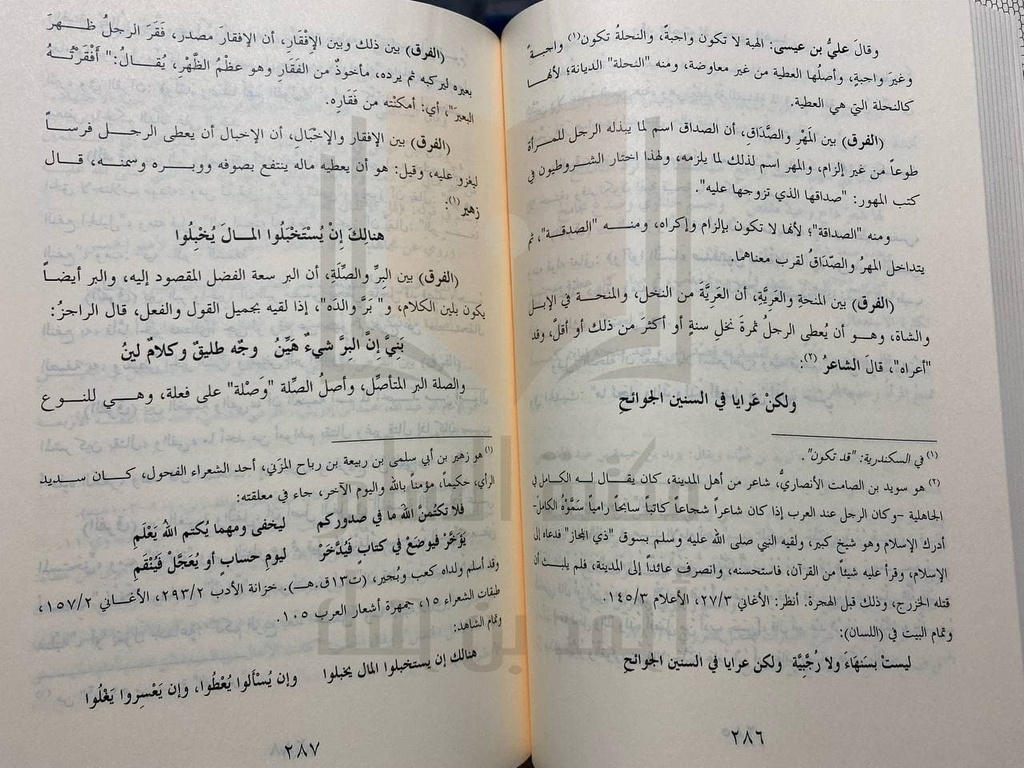 وقالَ عليُّ بن عيسى: الهبة لا تكون واجبةً، والنحلة تكون(١) واجبةً
وغيرَ واجبةٍ، وأصلُها العطية من غير معاوضة، ومنه "النحلة" الديانة؛ لأنها
كالنحلة التي هي العطية.
(الفرق) بين المَهْر والصَّدَاقِ، أن الصداق اسم لما يبذله الرجل للمرأة
طوعاً من غير إلزام، والمهر اسم لذلك لما يلزمه، ولهذا اختار الشروطيون في
كتب المهور: "صداقها الذي تزوجها عليه".
ومنه "الصداقة"؛ لأنها لا تكون بإلزام وإكراه، ومنـــه "الصدقة"، ثم
يتداخل المهرُ والصّدَاقُ لقرب معناهما.
(الفرق) بين المنحة والعَرِيَّةِ، أن العَرِيَّة من النخل، والمنحة في الإبـل
والشاة، وهــو أن يُعطى الرجلُ ثمرةَ نخلِ سنةٍ أو أكثرَ من ذلك أو أقلَّ، وقد
"أعراه"، قالَ الشاعرُ(٢):
ولكنْ عَرايا في السنين الجَوائحِ
(١) في السكندرية: "قد تكون".
(٢) هو سويد بن الصامت الأنصاري، شاعر من أهل المدينة، كان يقال لــه الكامل في
الجاهلية -وكان الرجل عند العرب إذا كان شاعراً شجاعاً كاتباً سابحاً رامياً سَمَّوْهُ الكامل-
أدرك الإسلام وهو شيخ كبير، ولقيه النبي صلى الله عليه وسلم بسوق "ذي المجاز" فدعاه إلى
الإسلام، وقرأ عليه شيئاً من القرآن، فاستحسنه، وانصرف عائداً إلى المدينة، فلم يلبث أن
قتله الخزرج، وذلك قبل الهجرة. أنظر: الأغاني ٢٧/٣، الأعلام ١٤٥/٣.
وتمام البيت في (اللسان):
ليستْ بسَنهَاءَ ولا رُجَّبِيَّة ولكن عرايا في السنين الجوائحِ
٢٨٦
(الفرق) بين ذلك وبين الإفْقَارِ، أن الإفقار مصدر، فَقَرَ الرجلُ ظهرَ
بعيره ليركبه ثم يرده، مأخوذٌ من الفَقَارِ وهو عظمُ الظَّهْرِ، يُقالُ: "أَفْقَرْتُهُ
البعيرَ"، أي: أمكنْته من فَقَارِهِ.
(الفرق) بين الإفقار والإخْبَالِ، أن الإخبال أن يعطى الرجـل فرسـاً
ليغزو عليه، وقيل: هو أن يعطيه ماله ينتفع بصوفه ووبـره وسمنـه، قـال
زهير(١):
هنالِكَ إنْ يُسْتَخْبَلُوا المـالَ يُخْبِلُوا
(الفرق) بين البِرِّ والصِّلَةِ، أن البر سعة الفضل المقصود إليه، والبر أيضـاً
يكون بلين الكلام، و"بَرَّ والدَه"، إذا لقيه بجميل القول والفعل، قال الراجزُ:
بَنيَّ إنَّ البِرَّ شيء هَيِّنُ وجْه طليقٌ وكلامٌ لينُ
والصلة البر المتأصِّل، وأصلُ الصِّلة "وَصْلة" على فعلة، وهـي للنـوع
(١) هو زهير بن أبي سلمى بن ربيعة بن رباح المزَني، أحد الشعراء الفحول، كـان سـديد
الرأي، حكيماً، مؤمناً بالله واليوم الآخر، جاء في معلقته:
فلا تكتُمنَّ اللهَ ما في صدوركم ليخفى ومهما يُكتم اللهُ يَعْلَمِ
يُؤخَّرْ فيوضَعْ في كتابٍ فيُدَّخَرْ ليومِ حسابٍ أو يُعَجَّلْ فَيُنْقَمِ
وقد أسلم ولداه كعب وبُجَير، (ت١٣ق.هـ). خزانة الأدب ٢٩٣/٢، الأغاني ١٥٧/٢،
طبقات الشعراء ١٥، جمهرة أشعار العرب ١٠٥.
وتمام الشاهد:
هنالك إن يستخبلوا المال يخبلوا وإن يُسْألوا يُعْطُوا، وإن يَعْسِروا يَغْلُوا
٢٨٧